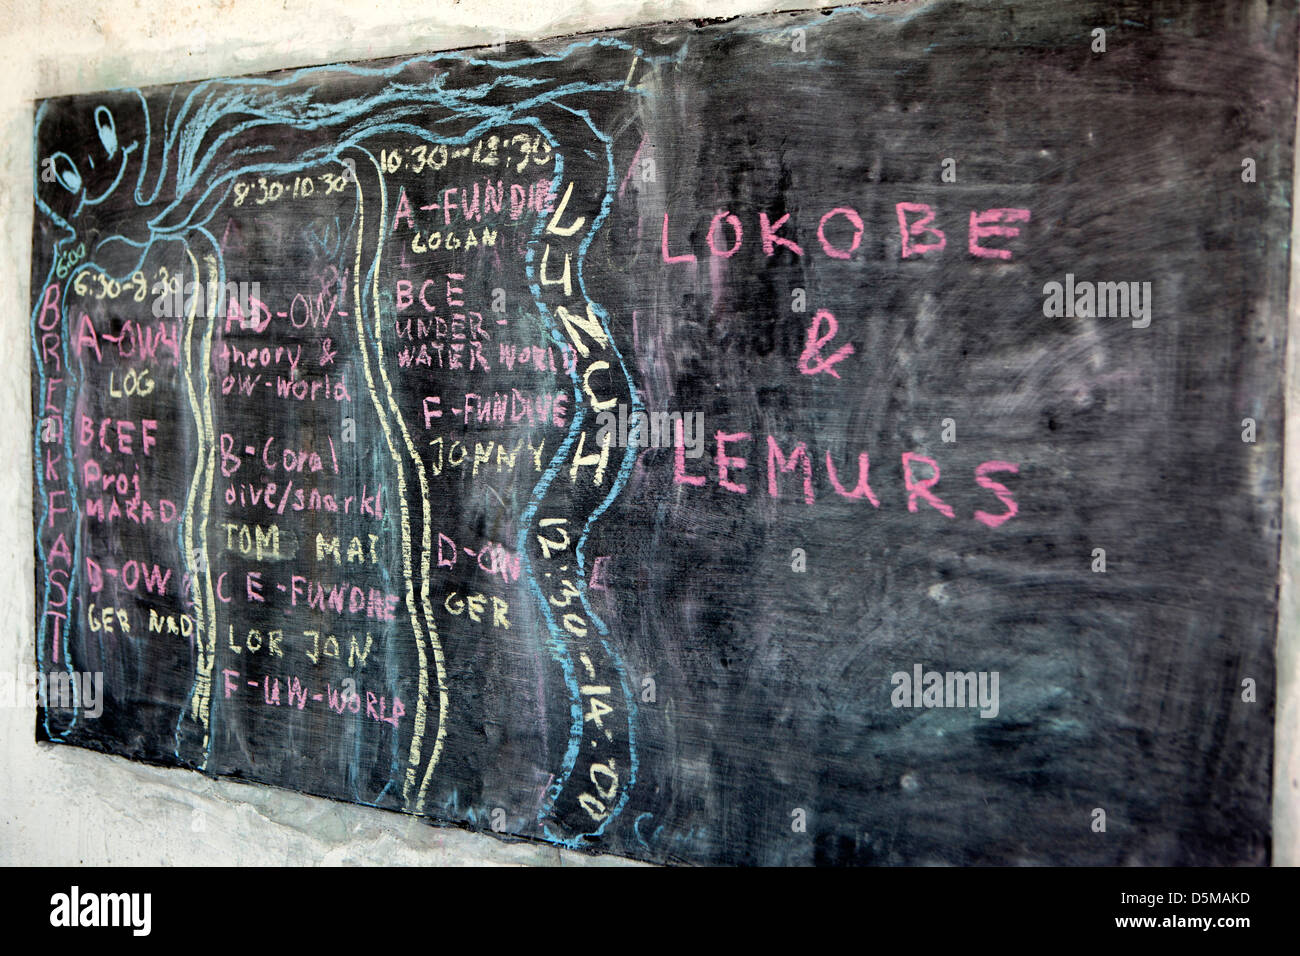 6:00
BREAKFAST
6:30-8:30
A-OW
LOG
BCEF
Proj
MARAD
D-OW
GER NAD
8:30-10:30
AD-OW-
theory &
OW-world
B-Coral
dive/snorkl
TOM MAT
CE-FUNDIVE
LOR JON
F-UW-WORLD
10:30-12:30
A-FUNDIVE
LOGAN
BCE
UNDER-
WATER WORLD
F-FUNDIVE
JONNY
D-OW
GER
LUNCH 12:30-14:00
LOKOBE
&
LEMURS
alamy
alamy
www.alamy.com
D5MAKD